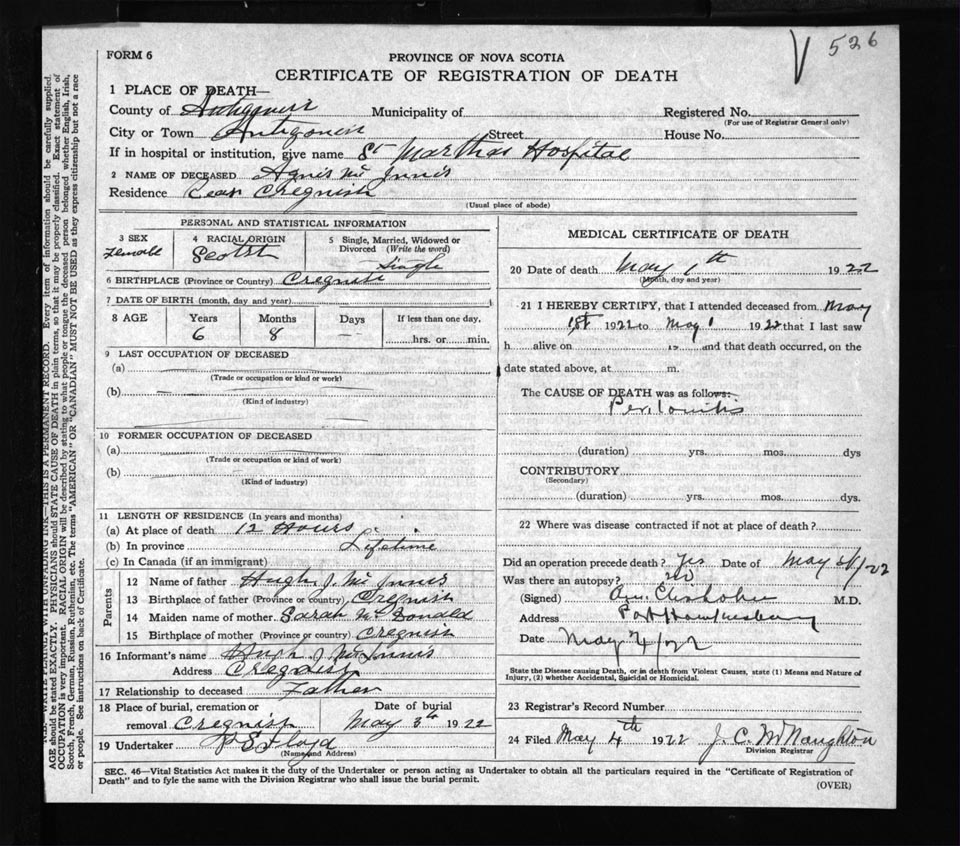 FORM 6
PROVINCE OF NOVA SCOTIA
V 526
CERTIFICATE OF REGISTRATION OF DEATH
1 PLACE OF DEATH—
County of Municipality of Registered No.
(For use of Registrar General only)
City or Town Antigonish Street House No.
If in hospital or institution, give name St Marthas Hospital
2 NAME OF DECEASED Agnes Mc Innis
Residence Cregnish
(Usual place of abode)
PERSONAL AND STATISTICAL INFORMATION
3 SEX 4 RACIAL ORIGIN 5 Single, Married, Widowed or Divorced (Write the word)
Female Scotch Single
6 BIRTHPLACE (Province or Country) Cregnish
7 DATE OF BIRTH (month, day and year)
8 AGE Years Months Days If less than one day,
6 8 — hrs. or min.
9 LAST OCCUPATION OF DECEASED
(a)
(Trade or occupation or kind or work)
(b)
(Kind of industry)
10 FORMER OCCUPATION OF DECEASED
(a)
(Trade or occupation or kind of work)
(b)
(Kind of industry)
11 LENGTH OF RESIDENCE (In years and months)
(a) At place of death 12 Hours
(b) In province Lifetime
(c) In Canada (if an immigrant)
Parents
12 Name of father Hugh J. Mc Innis
13 Birthplace of father (Province or country) Cregnish
14 Maiden name of mother Sarah Mc Donald
15 Birthplace of mother (Province or country) Cregnish
16 Informant's name Hugh J McInnis
Address Cregnish
17 Relationship to deceased Father
18 Place of burial, cremation or Date of burial
removal Cregnish May 3th 1922
19 Undertaker P S Floyd
(Name and Address)
MEDICAL CERTIFICATE OF DEATH
20 Date of death May 1th 1922
(Month, day and year)
21 I HEREBY CERTIFY, that I attended deceased from May
1st 1922 to May 1 1922 that I last saw
h alive on 19 and that death occurred, on the
date stated above, at m.
The CAUSE OF DEATH was as follows:
Peritonitis
(duration) yrs. mos. dys
CONTRIBUTORY
(Secondary)
(duration) yrs. mos. dys.
22 Where was disease contracted if not at place of death?
Did an operation precede death? Yes Date of May /22
Was there an autopsy? No
(Signed) Chisholm M.D.
Address Port Hawkesbury
Date May 4/22
State the Disease causing Death, or in death from Violent Causes, state (1) Means and Nature of
Injury, (2) whether Accidental, Suicidal or Homicidal.
23 Registrar's Record Number
24 Filed May 4th 1922 J. C. McNaughton
Division Registrar
SEC. 46—Vital Statistics Act makes it the duty of the Undertaker or person acting as Undertaker to obtain all the particulars required in the "Certificate of Registration of
Death" and to fyle the same with the Division Registrar who shall issue the burial permit.
(OVER)
N.B.—WRITE PLAINLY, WITH UNFADING INK—THIS IS A PERMANENT RECORD. Every item of information should be carefully supplied.
AGE should be stated EXACTLY. PHYSICIANS should STATE CAUSE OF DEATH in plain terms, so that it may be properly classified. Exact statement of
OCCUPATION is very important. RACIAL ORIGIN will be described by stating to what people or tongue the deceased person belonged whether English, Irish,
Scotch, French, German, Russian, Ruthenian, etc. The terms "AMERICAN" OR "CANADIAN" MUST NOT BE USED as they express citizenship but not a race
or people. See instructions on back of Certificate.